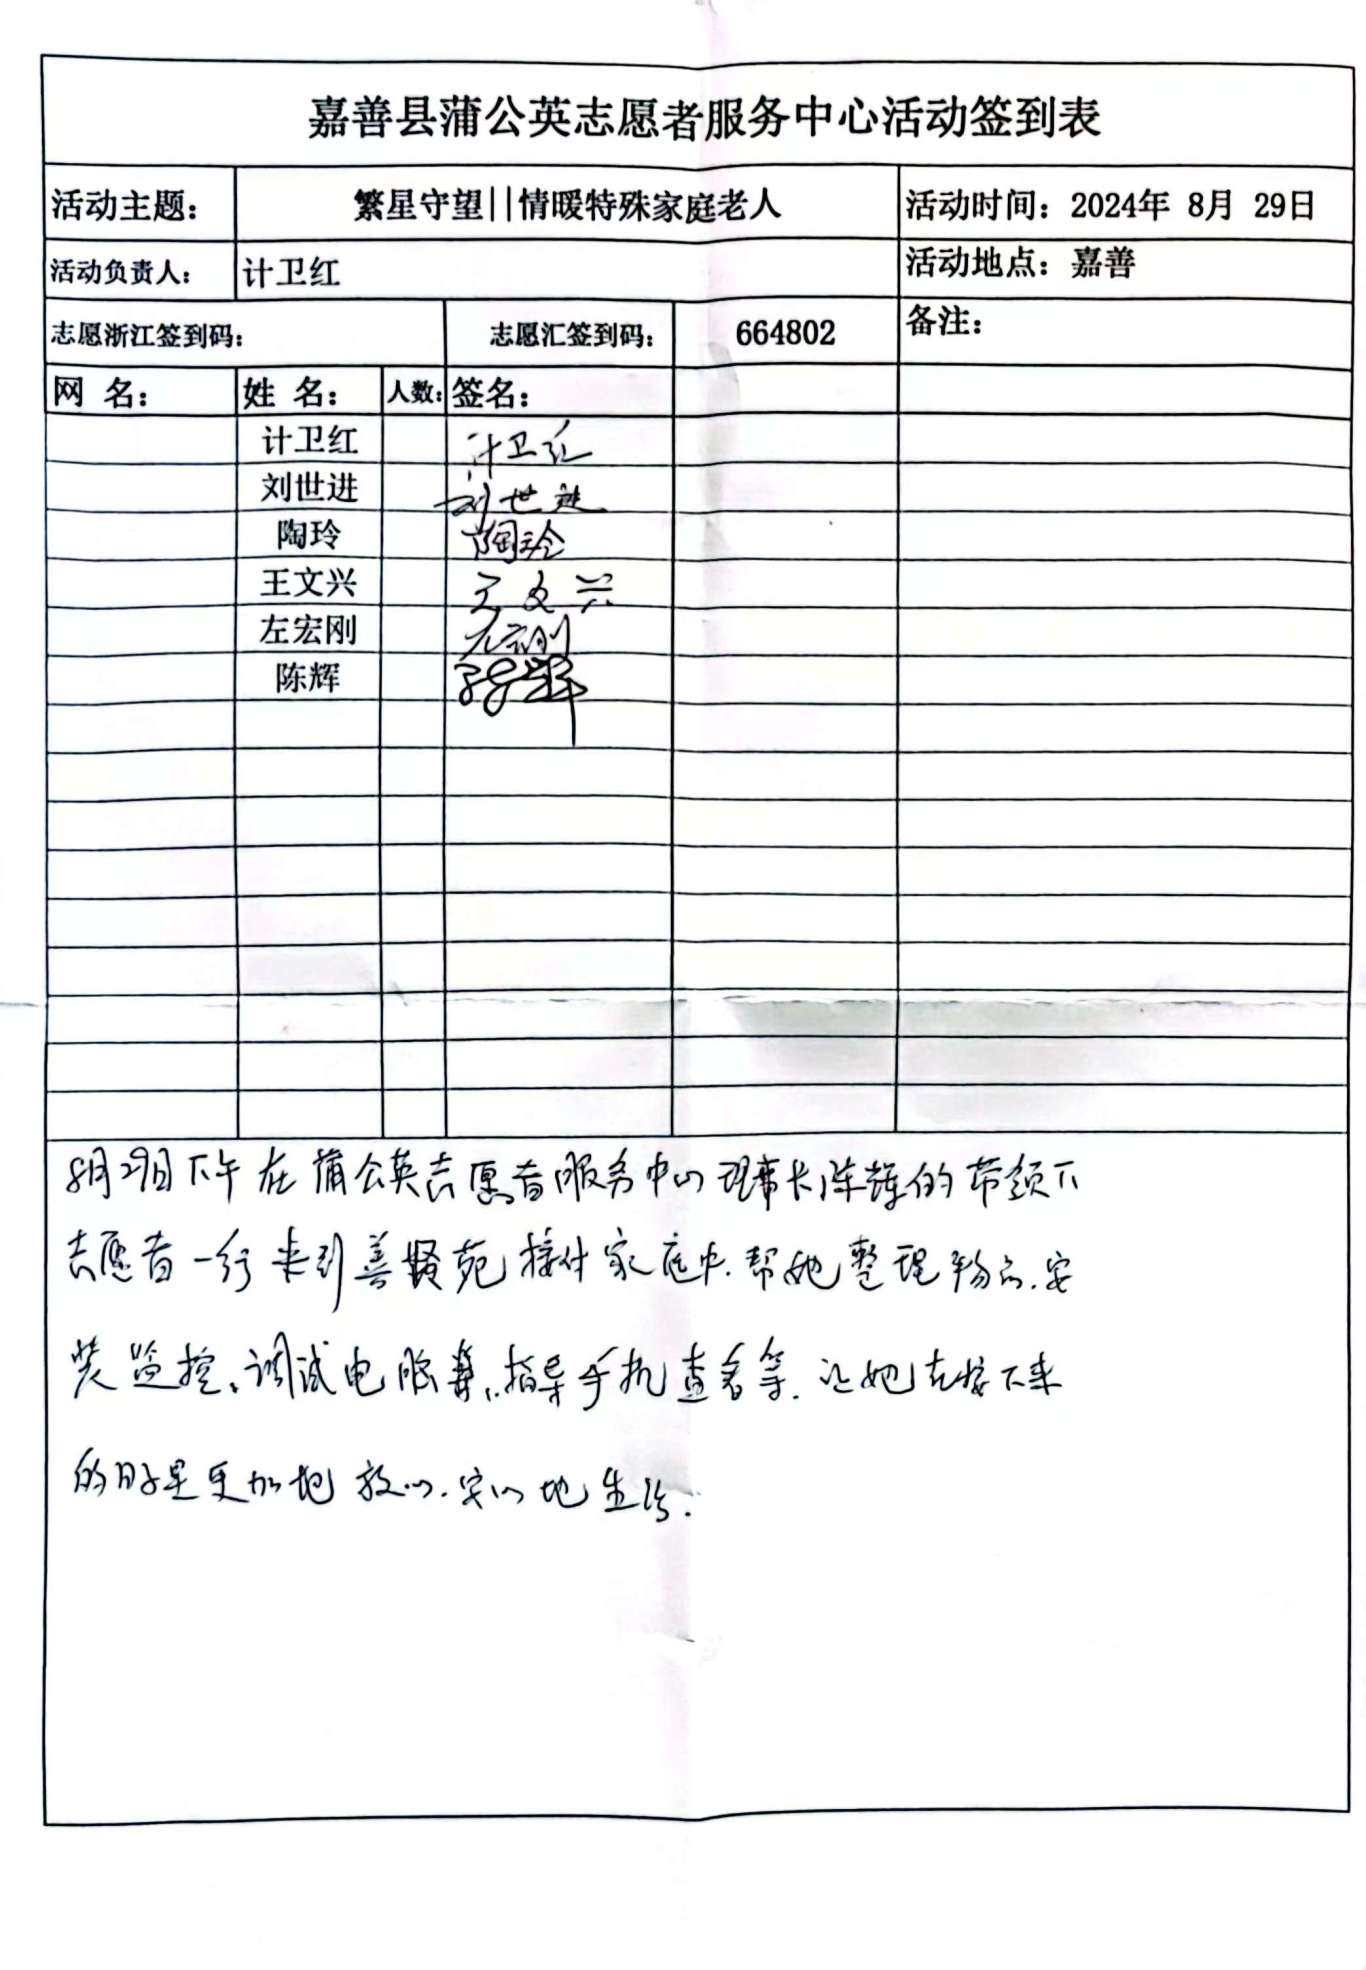 嘉善县蒲公英志愿者服务中心活动签到表
活动主题： 繁星守望||情暖特殊家庭老人 活动时间：2024年 8月 29日
活动负责人： 计卫红 活动地点：嘉善
志愿浙江签到码： 志愿汇签到码： 664802 备注：
网 名： 姓 名： 人数： 签名：
计卫红 计卫红
刘世进 刘世进
陶玲 陶玲
王文兴 王文兴
左宏刚 左宏刚
陈辉 陈辉
8月29日下午在蒲公英志愿者服务中心理事长陈辉的带领下
志愿者一行来到善贤苑 家庭中.帮她整理物品.安
装监控、调试电脑 、指导手机查看等.让她在接下来
的日子里更加地放心.安心地生活.